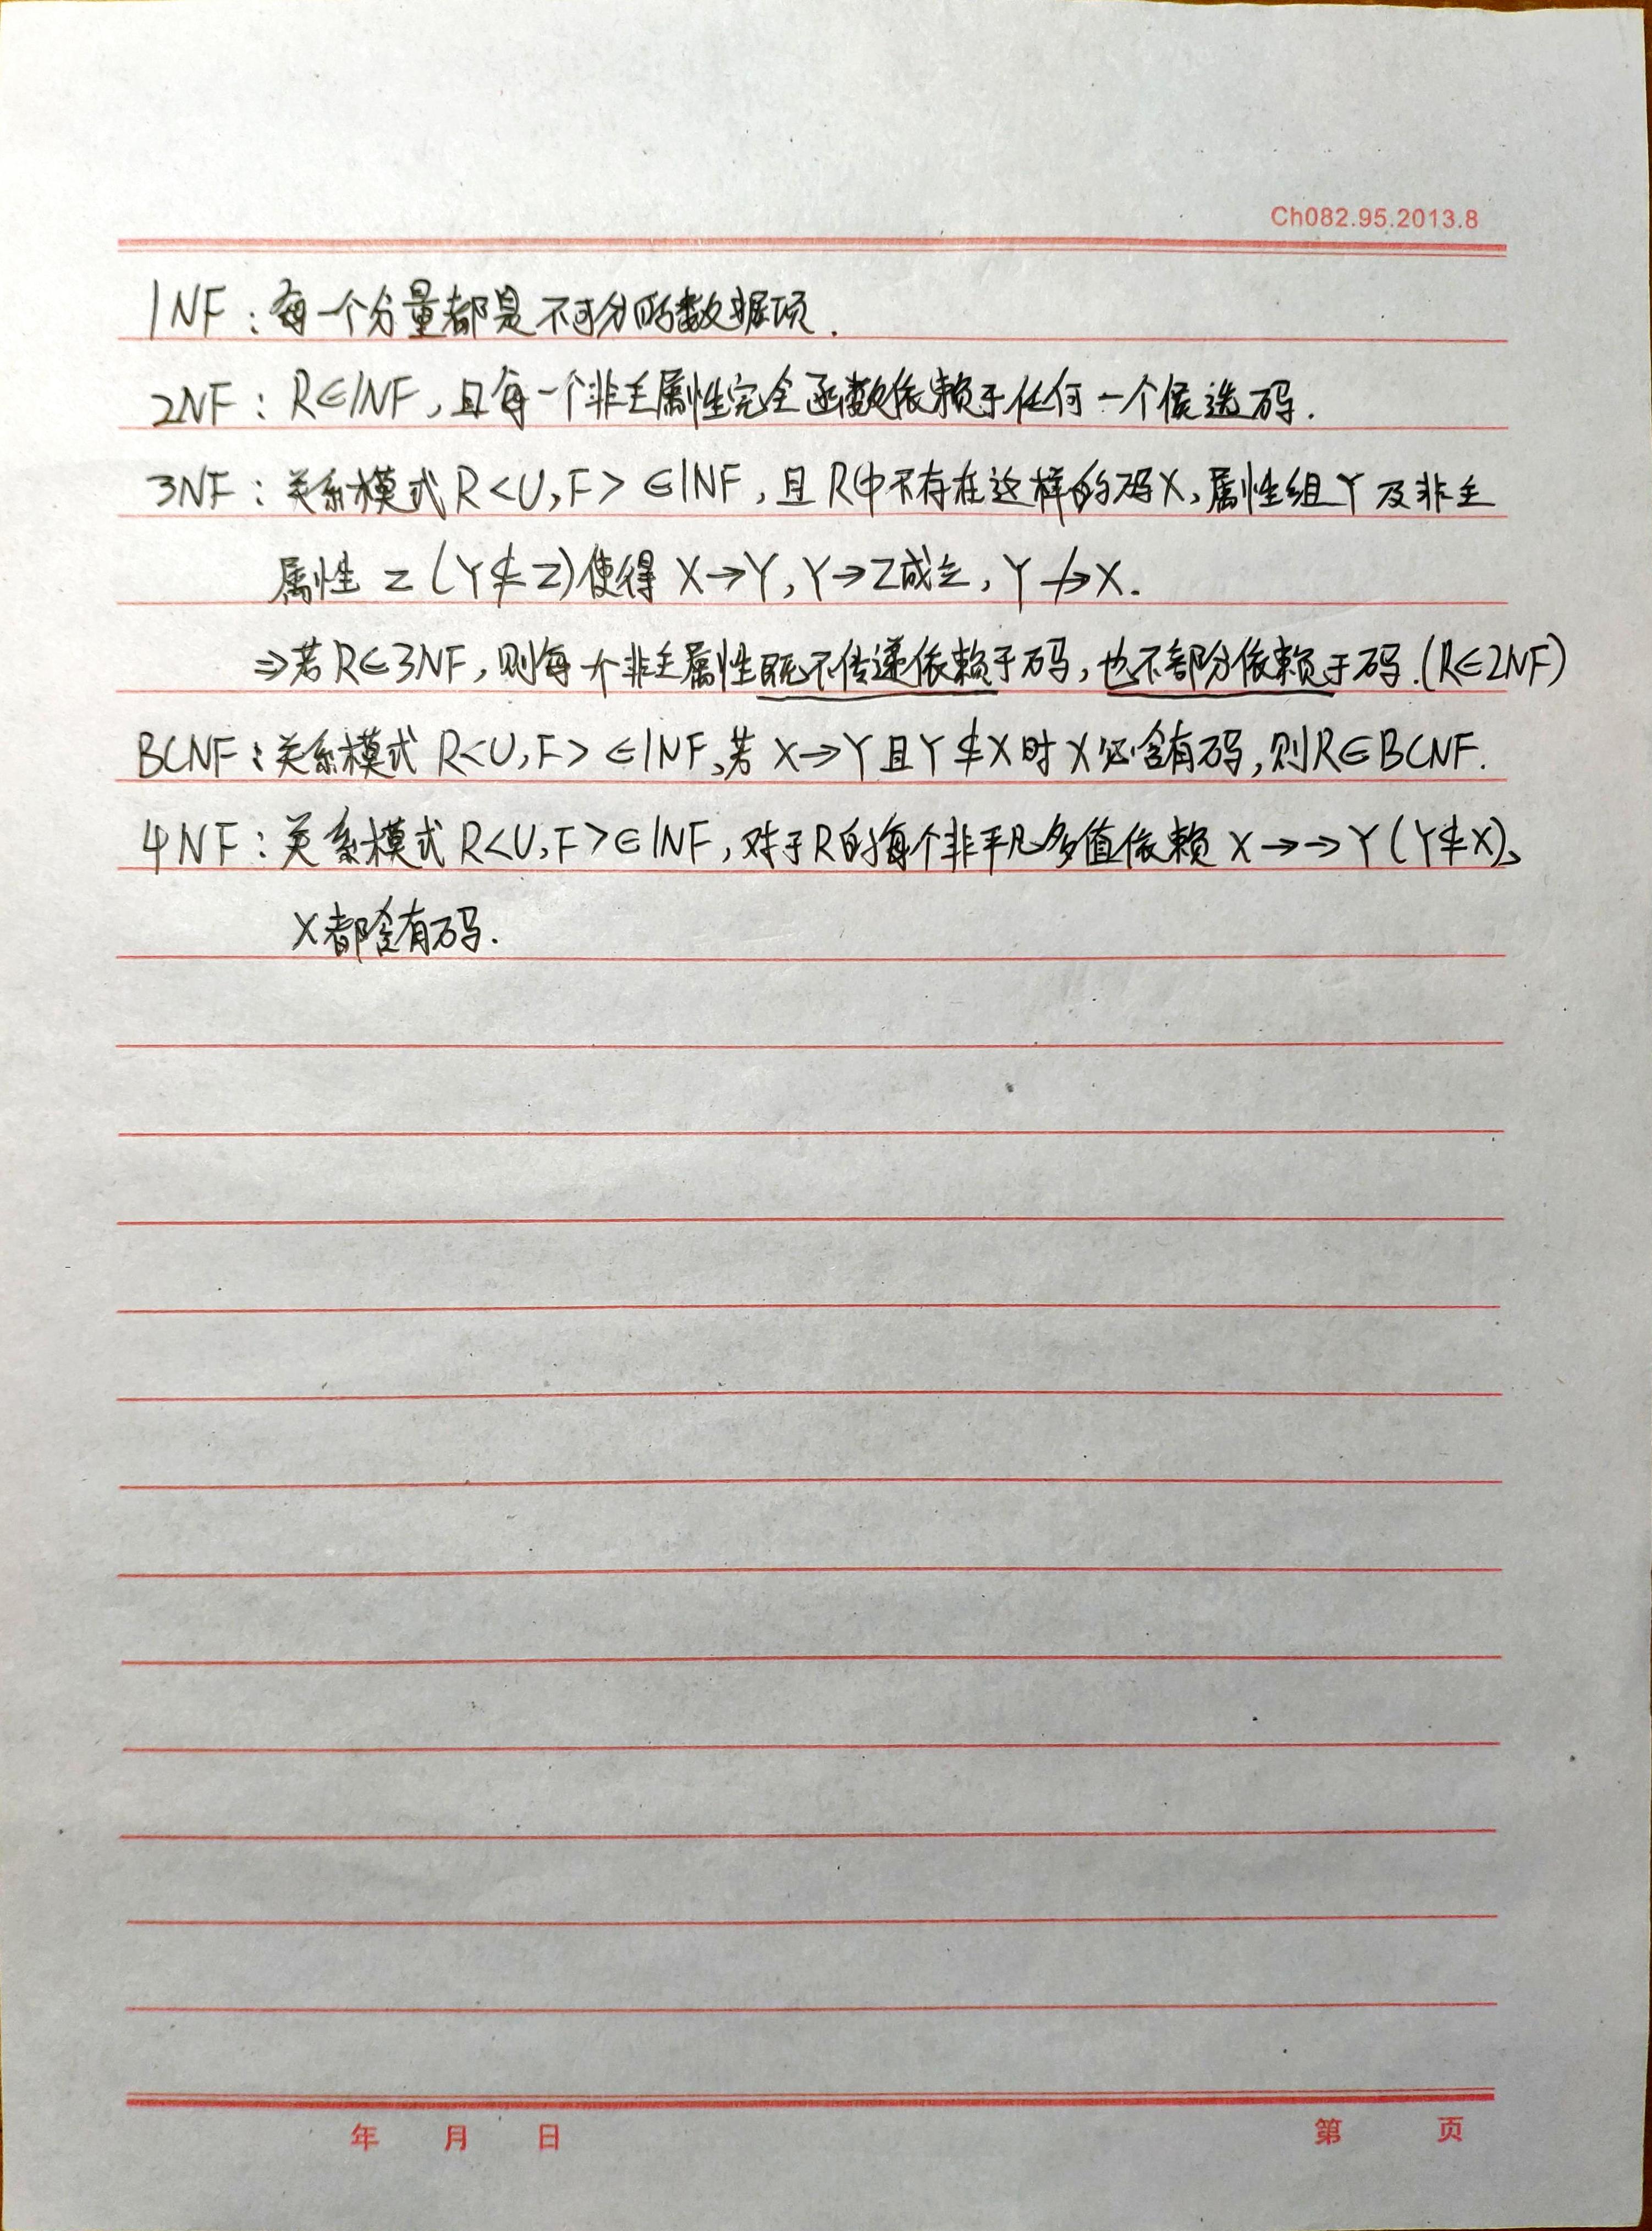 Ch082.95.2013.8
1NF：每一个分量都是不可分的数据项.
2NF：R∈1NF,且每一个非主属性完全函数依赖于任何一个侯选码.
3NF：关系模式R<U,F>∈1NF,且R中不存在这样的码X,属性组Y及非主
属性Z(Y⊈Z)使得X→Y,Y→Z成立,Y↛X.
⇒若R∈3NF,则每个非主属性既不传递依赖于码,也不部分依赖于码.(R∈2NF)
BCNF：关系模式R<U,F>∈1NF,若X→Y且Y⊈X时X必含有码,则R∈BCNF.
4NF：关系模式R<U,F>∈1NF,对于R的每个非平凡多值依赖X→→Y(Y⊈X),
X都含有码.
年 月 日 第 页